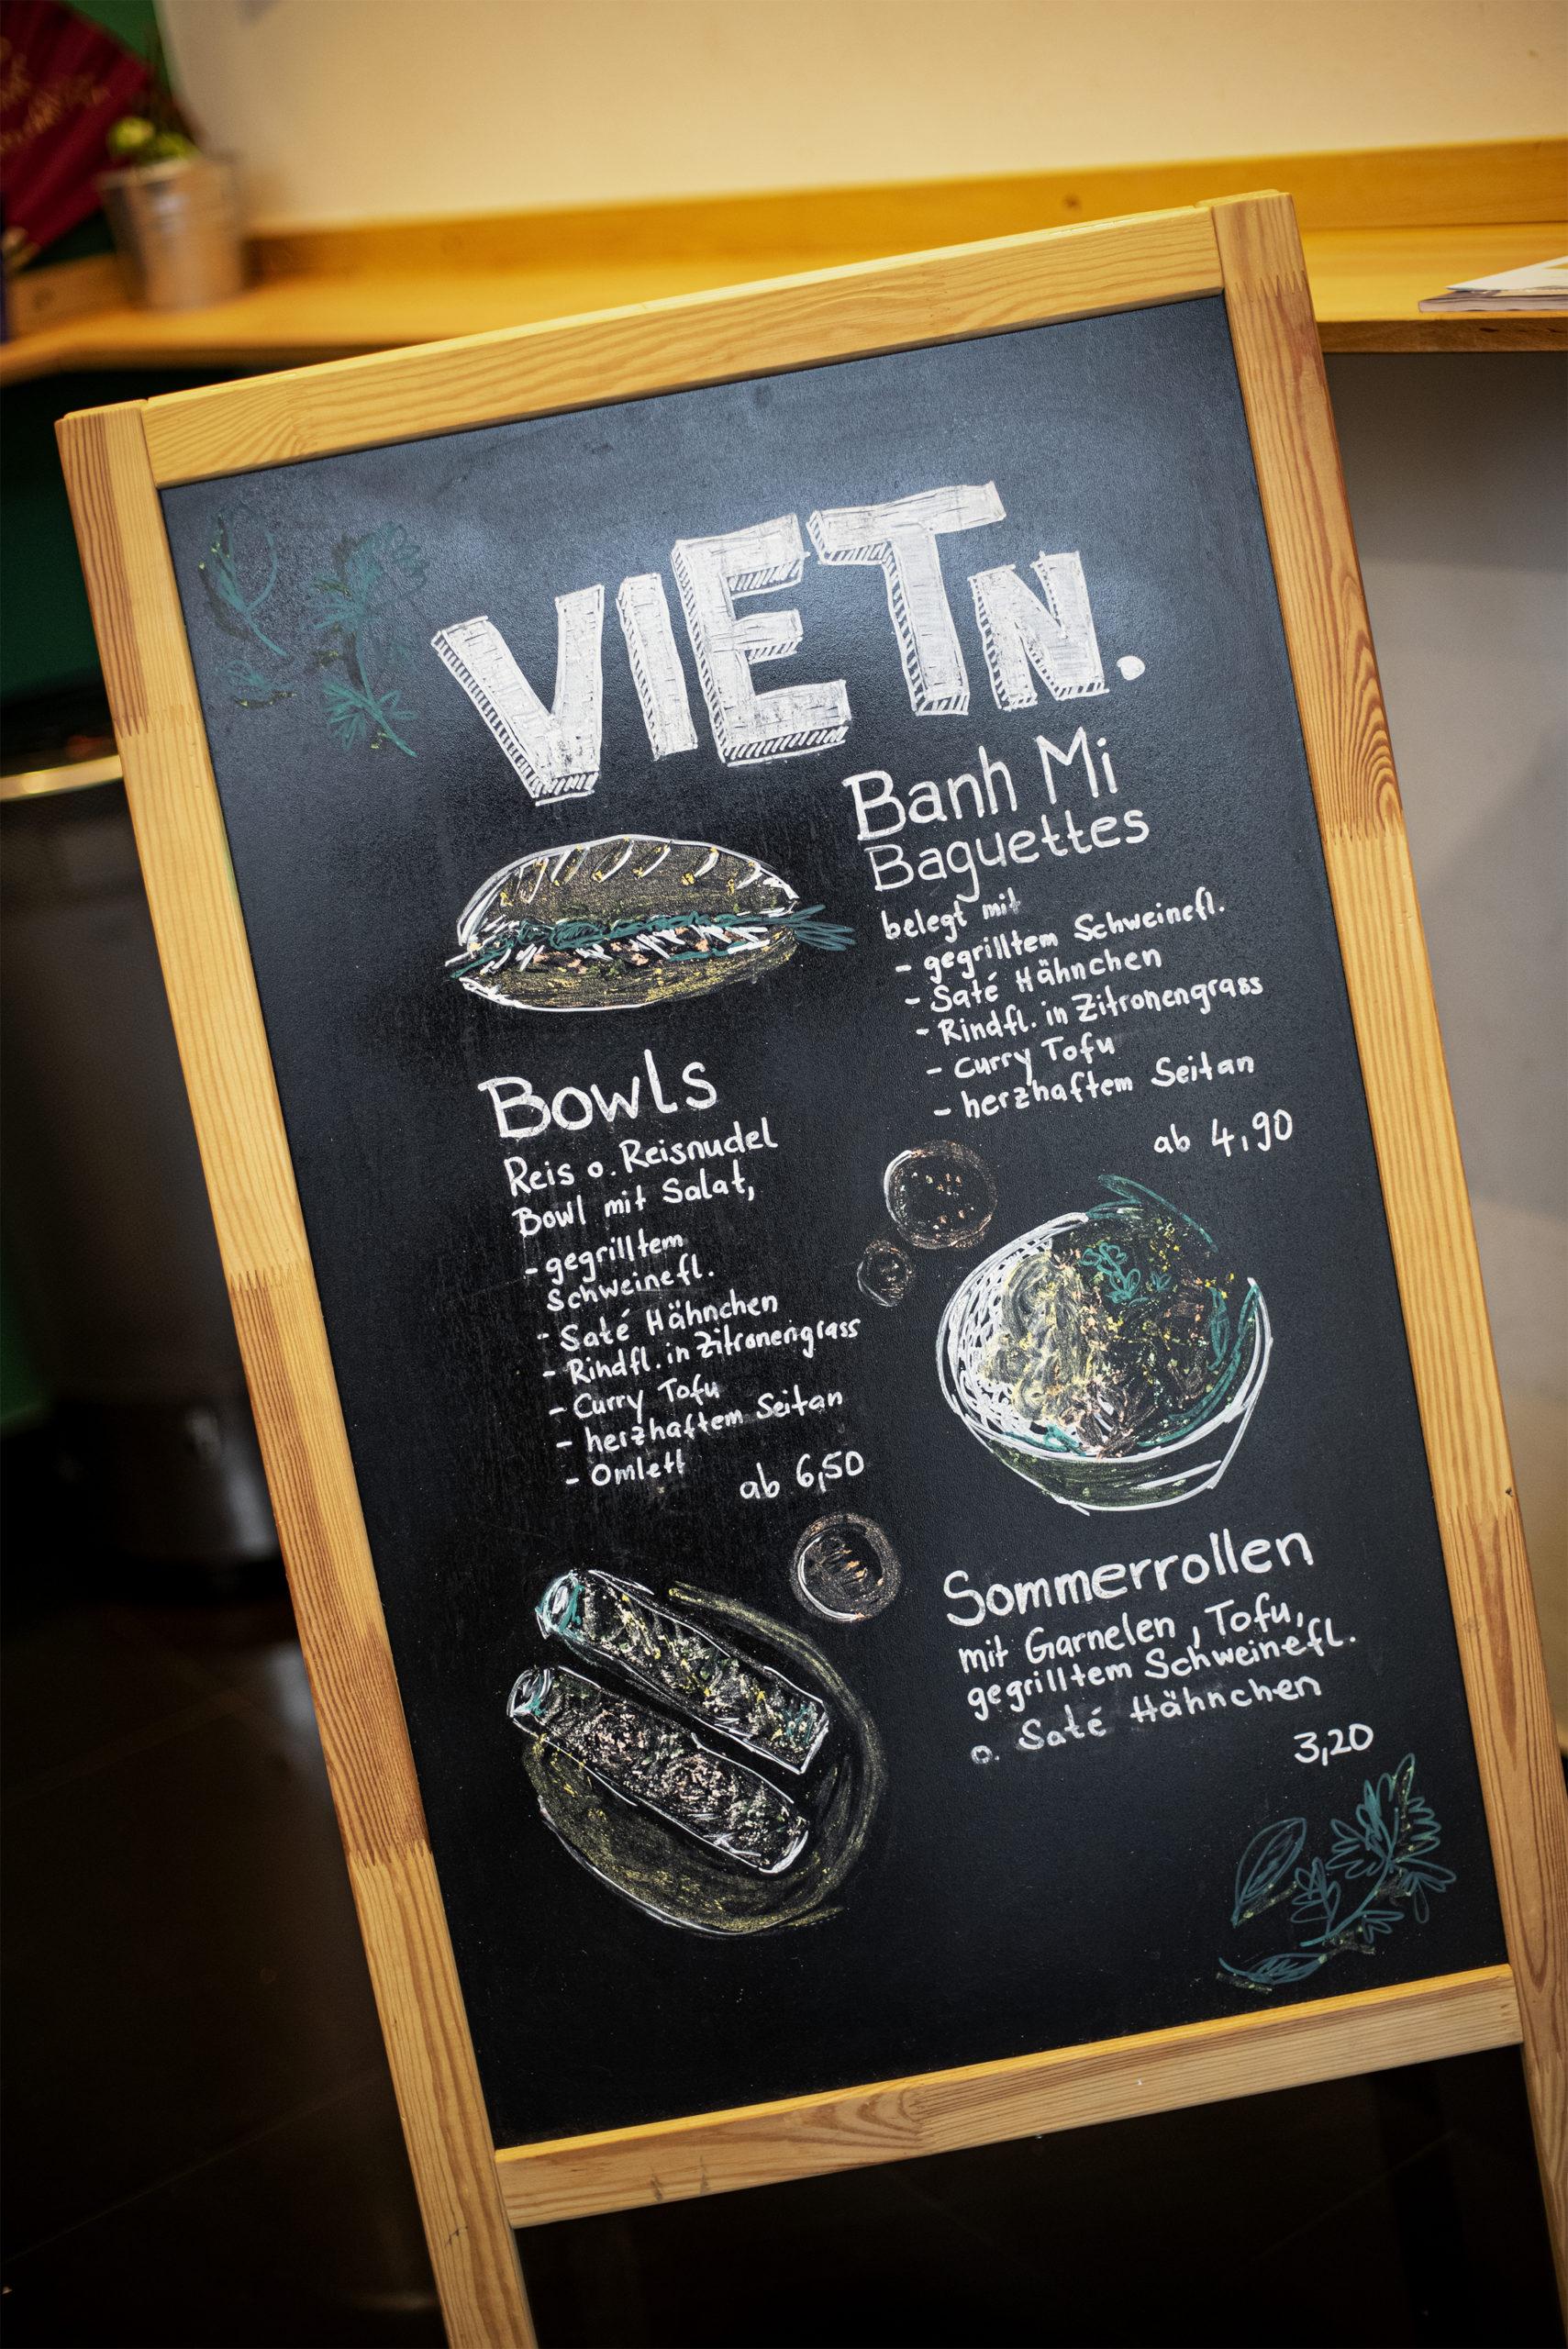 VIETN.
Banh Mi
Baguettes
belegt mit
- gegrilltem Schweinefl.
- Saté Hähnchen
- Rindfl. in Zitronengrass
- Curry Tofu
- herzhaftem Seitan
ab 4,90
Bowls
Reis o. Reisnudel
Bowl mit Salat,
- gegrilltem
Schweinefl.
- Saté Hähnchen
- Rindfl. in Zitronengrass
- Curry Tofu
- herzhaftem Seitan
- Omlett
ab 6,50
Sommerrollen
mit Garnelen, Tofu,
gegrilltem Schweinefl.
o. Saté Hähnchen
3,20